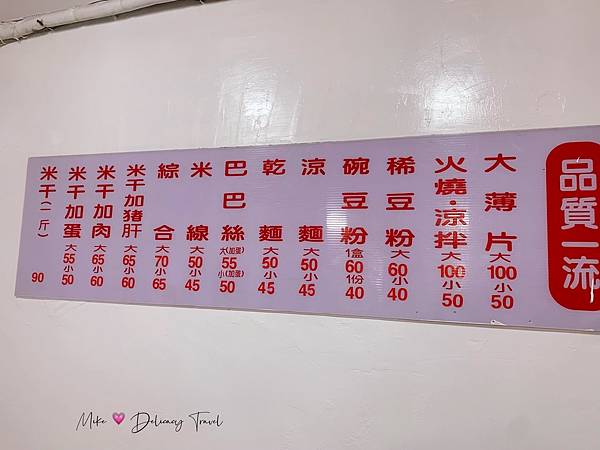 品質一流
大薄片 大100 小50
火燒·涼拌 大100 小50
稀豆粉 大60 小40
碗豆粉 1盒60 1份40
涼麵 大50 小45
乾麵 大50 小45
巴巴絲 大(加蛋)55 小(加蛋)50
米線 大50 小45
綜合 大70 小65
米干加豬肝 大65 小60
米干加肉 大65 小60
米干加蛋 大55 小50
米干(一斤) 90
Mike 💗 Delicacy Travel